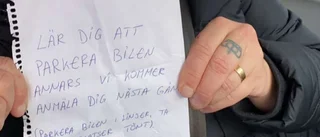 LÄR DIG ATT
PARKERA BILEN
ANNARS VI KOMMER
ANMÄLA DIG NÄSTA GÅN
(PARKERA BILEN I LINJER, TA
PLATSER TÖNT)